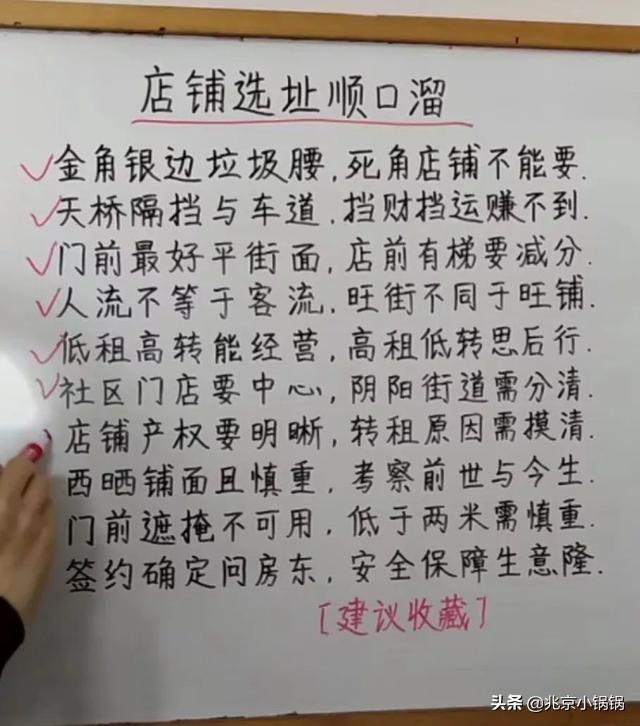 店铺选址顺口溜
金角银边垃圾腰,死角店铺不能要.
天桥隔挡与车道,挡财挡运赚不到.
门前最好平街面,店前有梯要减分.
人流不等于客流,旺街不同于旺铺.
低租高转能经营,高租低转思后行.
社区门店要中心,阴阳街道需分清.
店铺产权要明晰,转租原因需摸清.
西晒铺面且慎重,考察前世与今生.
门前遮掩不可用,低于两米需慎重.
签约确定问房东,安全保障生意隆.
[建议收藏]
头条 @兆京小锅锅